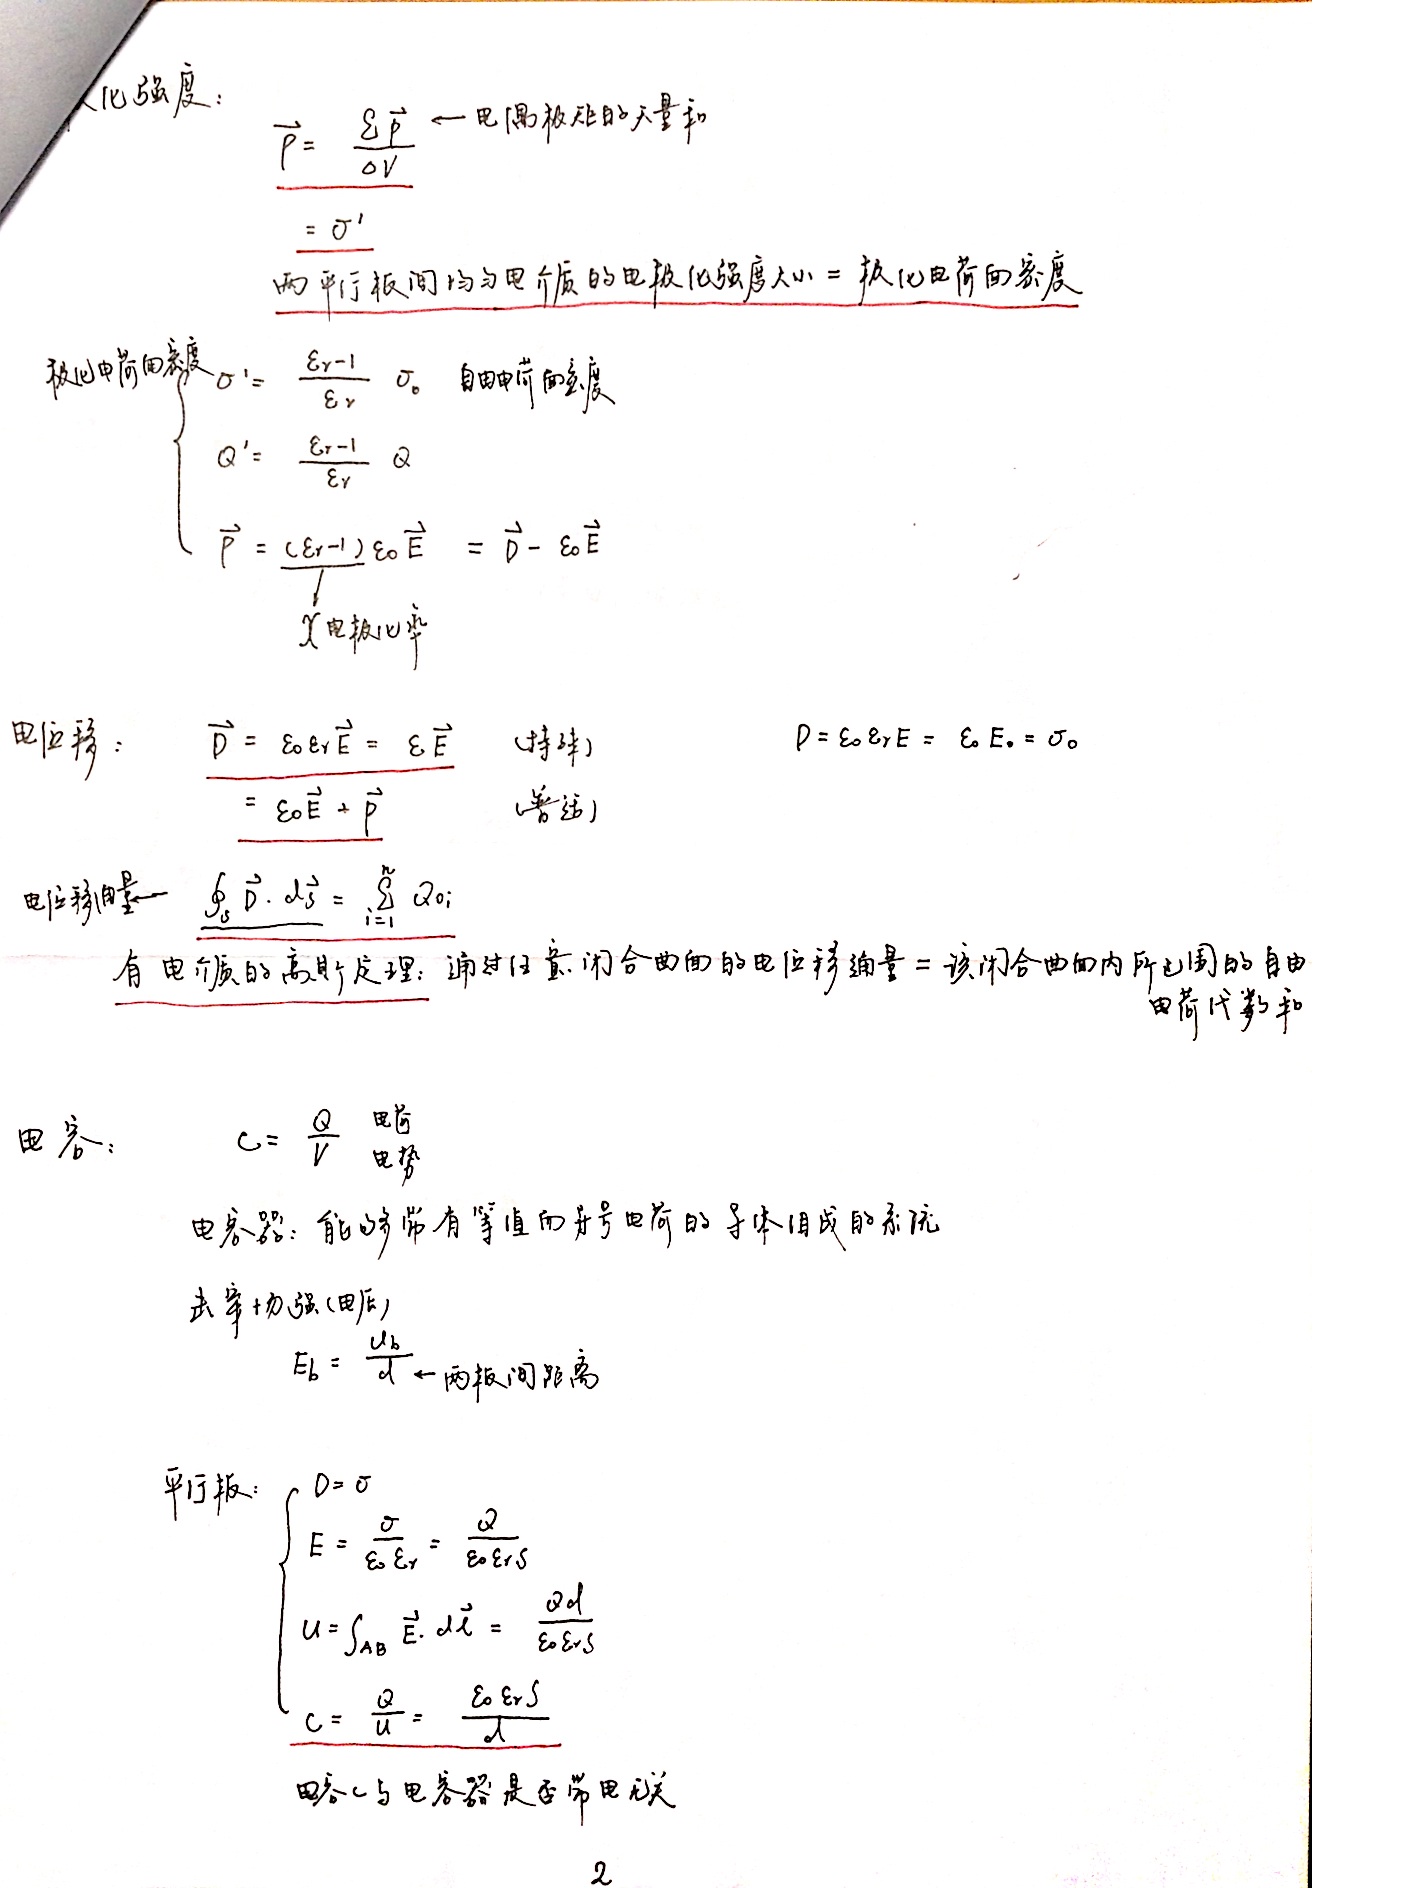 化强度：
P⃗ = Σp⃗ / ΔV ← 电偶极矩的矢量和
= σ'
两平行板间均匀电介质的电极化强度大小 = 极化电荷面密度
极化电荷面密度 σ' = (εr-1)/εr σ₀ 自由电荷面密度
Q' = (εr-1)/εr Q
P⃗ = (εr-1)ε₀E⃗ = D⃗ - ε₀E⃗
χ 电极化率
电位移： D⃗ = ε₀εrE⃗ = εE⃗ (特殊) D = ε₀εrE = ε₀E₀ = σ₀
= ε₀E⃗ + P⃗ (普适)
电位移通量← ∮s D⃗·dS⃗ = Σ(i=1→n) Q₀i
有电介质的高斯定理：通过任意闭合曲面的电位移通量 = 该闭合曲面内所包围的自由
电荷代数和
电容： C = Q/V 电荷 电势
电容器：能够带有等值而异号电荷的导体组成的系统
击穿场强(电压)
Eb = Ub/d ← 两板间距离
平行板： D = σ
E = σ/(ε₀εr) = Q/(ε₀εrS)
U = ∫AB E⃗·dl⃗ = Qd/(ε₀εrS)
C = Q/U = ε₀εrS/d
电容C与电容器是否带电无关
2